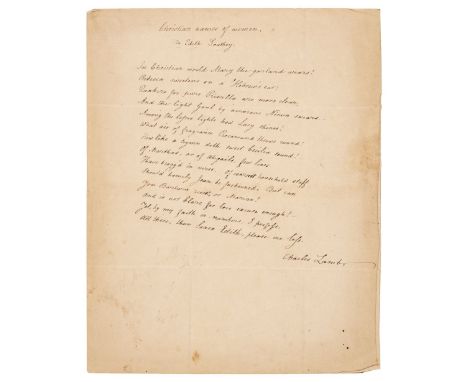 Christian names of women.
To Edith Southey.
In Christian world Mary the garland wears!
Rebecca sweetens on a Hebrew's ear;
Quakers for pure Priscilla are more clear;
And the light Gaul by amorous Ninon swears.
Among the lesser lights how Lucy shines!
What air of fragrance Rosamund throws round!
How like a hymn doth sweet Cecilia sound!
Of Marthas, or of Abigails, few lines
Have bragg'd in verse. Of coarsest household stuff
Should homely Joan be fashioned. But can
You Barbara resist, or Marian?
And is not Clare for love excuse enough?
Yet, by my faith in numbers, I profess,
All these, than Saxon Edith, please me less.
Charles Lamb.